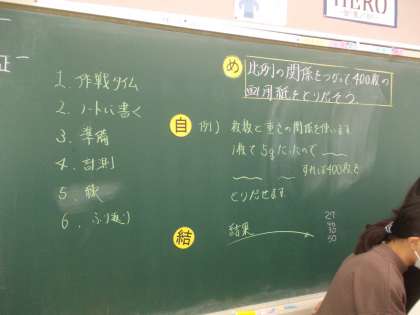 HERO
証
1. 作戦タイム
2. ノートに書く
3. 準備
4. 計測
5.
6. ふり返り
め
比例の関係をつかって400枚の
画用紙をとりだそう。
自
例) 枚数と重さの関係を使います
1枚で5gだったので
すれば400枚を
とりだせます
結
結果
27
30
50